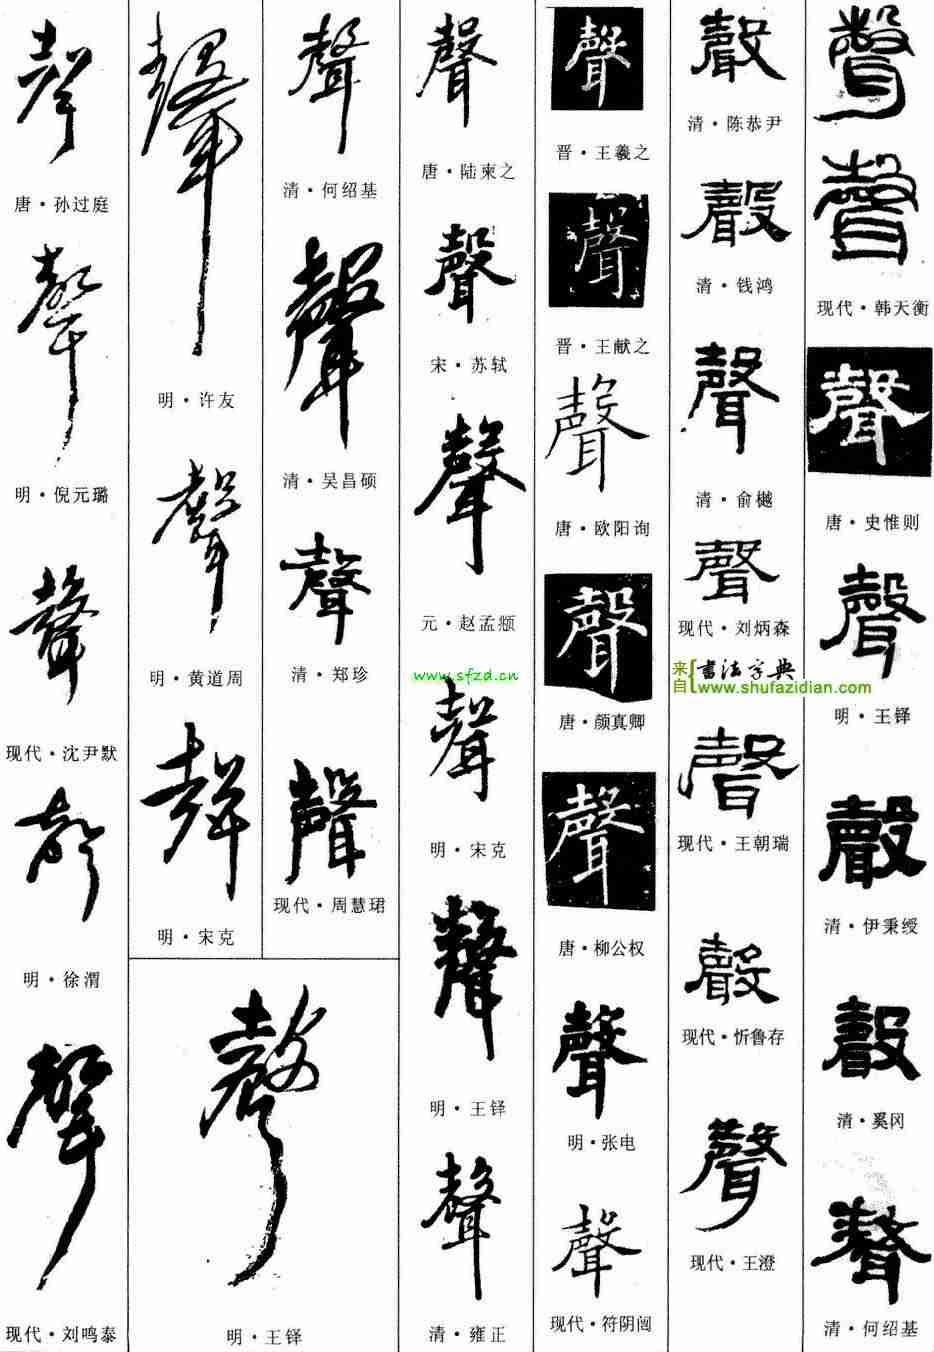 聲
聲
现代·韩天衡
聲
唐·史惟则
聲
明·王铎
聲
清·伊秉绶
聲
清·奚冈
聲
清·何绍基
聲
清·陈恭尹
聲
清·钱鸿
聲
清·俞樾
聲
现代·刘炳森
来自
书法字典
www.shufazidian.com
聲
现代·王朝瑞
聲
现代·忻鲁存
聲
现代·王澄
聲
晋·王羲之
聲
晋·王献之
聲
唐·欧阳询
聲
唐·颜真卿
聲
唐·柳公权
聲
明·张电
聲
现代·符阴
聲
唐·陆柬之
聲
宋·苏轼
聲
元·赵孟頫
www.sfzd.cn
聲
明·宋克
聲
明·王铎
聲
清·雍正
聲
清·何绍基
聲
清·吴昌硕
聲
清·郑珍
聲
现代·周慧珺
聲
明·许友
聲
明·黄道周
聲
明·宋克
聲
明·王铎
聲
唐·孙过庭
聲
明·倪元璐
聲
现代·沈尹默
聲
明·徐渭
聲
现代·刘鸣泰